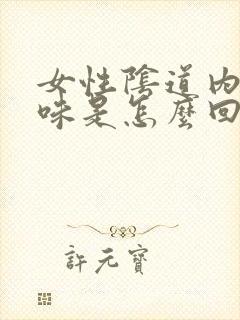 女性陰道內
味是怎麼回
許元寶